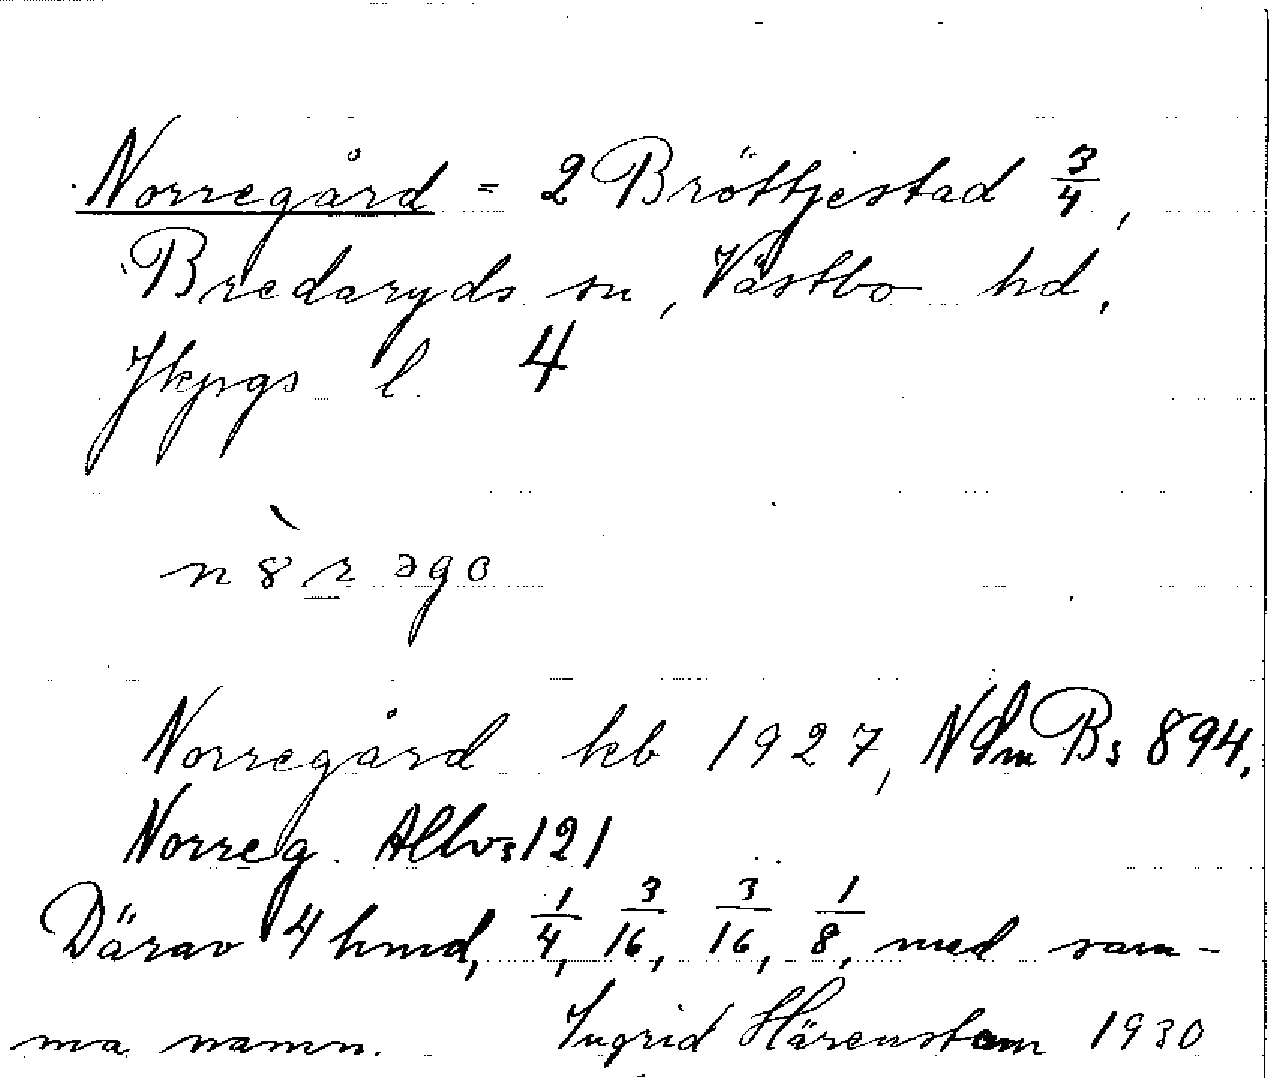 Norregård = 2 Bröttjestad 3/4,
Bredaryds sn, Västbo hd,
Jkpgs l. 4
Norregård kb 1927, 894,
Norreg. 121
Därav 4 hmd, 1/4, 3/16, 3/16, 1/8, med sam-
ma namn. Ingrid Härenstam 1930